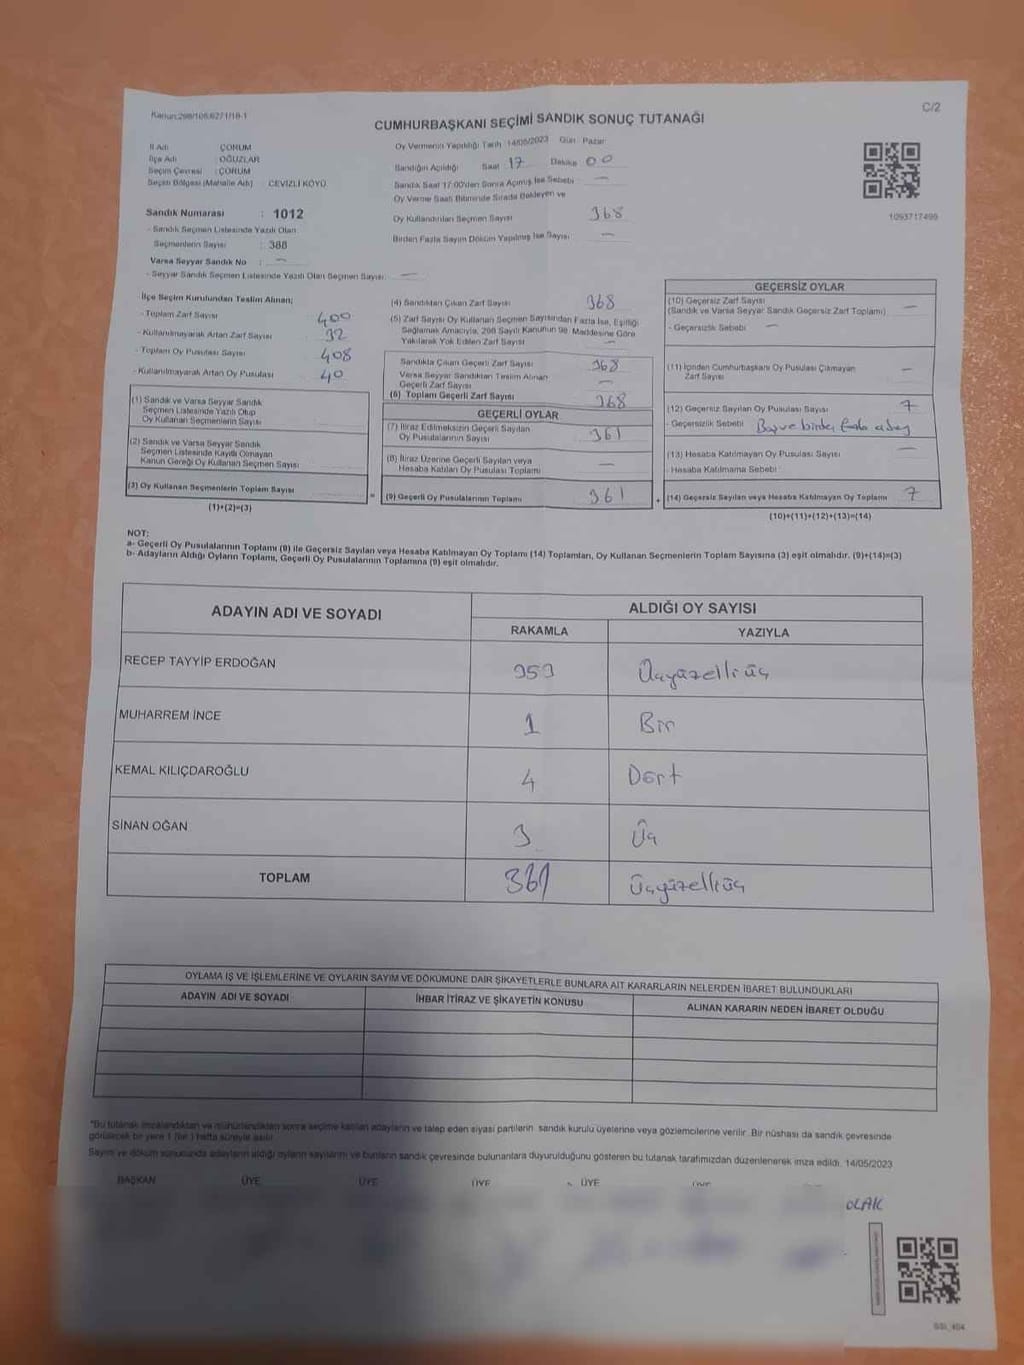 Kanun:298/106;6271/18-1
C/2
CUMHURBAŞKANI SEÇİMİ SANDIK SONUÇ TUTANAĞI
İl Adı ÇORUM
İlçe Adı OĞUZLAR
Seçim Çevresi : ÇORUM
Seçim Bölgesi (Mahalle Adı) CEVİZLİ KÖYÜ
Sandık Numarası : 1012
- Sandık Seçmen Listesinde Yazılı Olan
Seçmenlerin Sayısı : 388
Varsa Seyyar Sandık No : —
- Seyyar Sandık Seçmen Listesinde Yazılı Olan Seçmen Sayısı: —
Oy Vermenin Yapıldığı Tarih 14/05/2023 Gün Pazar
Sandığın Açıldığı Saat 17 Dakika 00
Sandık Saat 17:00'den Sonra Açılmış İse Sebebi —
Oy Verme Saati Bitiminde Sırada Bekleyen ve
Oy Kullandırılan Seçmen Sayısı 368
Birden Fazla Sayım Döküm Yapılmış İse Sayısı —
1093717499
İlçe Seçim Kurulundan Teslim Alınan;
- Toplam Zarf Sayısı 400
- Kullanılmayarak Artan Zarf Sayısı 32
- Toplam Oy Pusulası Sayısı 408
- Kullanılmayarak Artan Oy Pusulası 40
(1) Sandık ve Varsa Seyyar Sandık
Seçmen Listesinde Yazılı Olup
Oy Kullanan Seçmenlerin Sayısı
(2) Sandık ve Varsa Seyyar Sandık
Seçmen Listesinde Kayıtlı Olmayan
Kanun Gereği Oy Kullanan Seçmen Sayısı
(3) Oy Kullanan Seçmenlerin Toplam Sayısı
(1)+(2)=(3)
(4) Sandıktan Çıkan Zarf Sayısı 368
(5) Zarf Sayısı Oy Kullanan Seçmen Sayısından Fazla İse, Eşitliği
Sağlamak Amacıyla, 298 Sayılı Kanunun 98. Maddesine Göre
Yakılarak Yok Edilen Zarf Sayısı —
Sandıkta Çıkan Geçerli Zarf Sayısı 368
Varsa Seyyar Sandıktan Teslim Alınan
Geçerli Zarf Sayısı —
(6) Toplam Geçerli Zarf Sayısı 368
GEÇERLİ OYLAR
(7) İtiraz Edilmeksizin Geçerli Sayılan
Oy Pusulalarının Sayısı 361
(8) İtiraz Üzerine Geçerli Sayılan veya
Hesaba Katılan Oy Pusulası Toplamı —
= (9) Geçerli Oy Pusulalarının Toplamı 361 +
GEÇERSİZ OYLAR
(10) Geçersiz Zarf Sayısı
(Sandık ve Varsa Seyyar Sandık Geçersiz Zarf Toplamı) —
- Geçersizlik Sebebi —
(11) İçinden Cumhurbaşkanı Oy Pusulası Çıkmayan
Zarf Sayısı —
(12) Geçersiz Sayılan Oy Pusulası Sayısı 7
- Geçersizlik Sebebi Boş ve birden fazla aday
(13) Hesaba Katılmayan Oy Pusulası Sayısı —
- Hesaba Katılmama Sebebi
(14) Geçersiz Sayılan veya Hesaba Katılmayan Oy Toplamı 7
(10)+(11)+(12)+(13)=(14)
NOT:
a- Geçerli Oy Pusulalarının Toplamı (9) ile Geçersiz Sayılan veya Hesaba Katılmayan Oy Toplamı (14) Toplamları, Oy Kullanan Seçmenlerin Toplam Sayısına (3) eşit olmalıdır. (9)+(14)=(3)
b- Adayların Aldığı Oyların Toplamı, Geçerli Oy Pusulalarının Toplamına (9) eşit olmalıdır.
ADAYIN ADI VE SOYADI ALDIĞI OY SAYISI
RAKAMLA YAZIYLA
RECEP TAYYİP ERDOĞAN 353 Üçyüzelliüç
MUHARREM İNCE 1 Bir
KEMAL KILIÇDAROĞLU 4 Dört
SİNAN OĞAN 3 Üç
TOPLAM 361 Üçyüzelliüç
OYLAMA İŞ VE İŞLEMLERİNE VE OYLARIN SAYIM VE DÖKÜMÜNE DAİR ŞİKAYETLERLE BUNLARA AİT KARARLARIN NELERDEN İBARET BULUNDUKLARI
ADAYIN ADI VE SOYADI İHBAR İTİRAZ VE ŞİKAYETİN KONUSU ALINAN KARARIN NEDEN İBARET OLDUĞU
"Bu tutanak imzalandıktan ve mühürlendikten sonra seçime katılan adayların ve talep eden siyasi partilerin sandık kurulu üyelerine veya gözlemcilerine verilir. Bir nüshası da sandık çevresinde
görülecek bir yere 1 (bir) hafta süreyle asılır.
Sayım ve döküm sonucunda adayların aldığı oyların sayılarını ve bunların sandık çevresinde bulunanlara duyurulduğunu gösteren bu tutanak tarafımızdan düzenlenerek imza edildi. 14/05/2023
BAŞKAN ÜYE ÜYE ÜYE ÜYE
OLAK